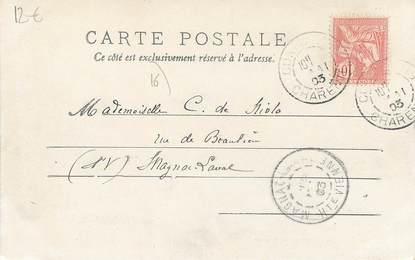 12 €
CARTE POSTALE
Ce côté est exclusivement réservé à l'adresse.
16
Mademoiselle C. de
rue de Beaulieu
(HV) Magnac-Laval
03
MAGNAC
HTE VIENNE